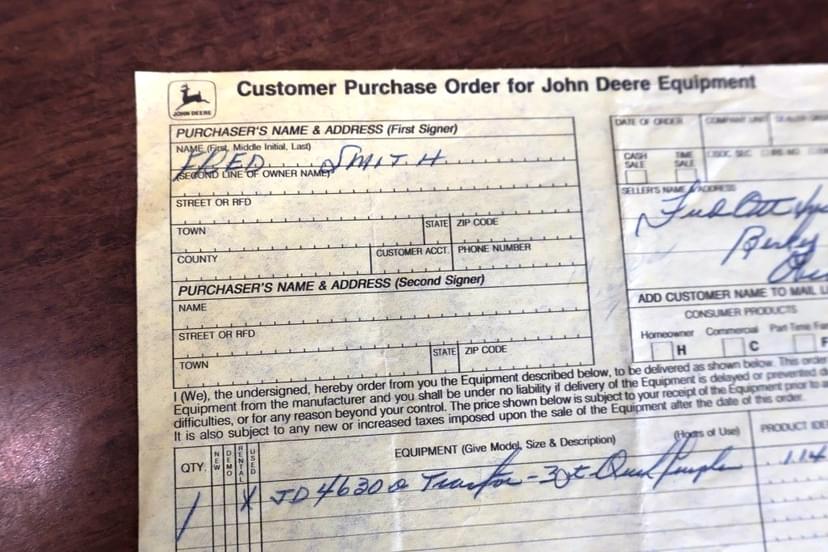 JOHN DEERE
Customer Purchase Order for John Deere Equipment
PURCHASER'S NAME & ADDRESS (First Signer)
NAME (First, Middle Initial, Last)
FRED SMITH
(SECOND LINE OF OWNER NAME)
STREET OR RFD
TOWN STATE ZIP CODE
COUNTY CUSTOMER ACCT. PHONE NUMBER
PURCHASER'S NAME & ADDRESS (Second Signer)
NAME
STREET OR RFD
TOWN STATE ZIP CODE
DATE OF ORDER COMPANY UNIT
CASH SALE TIME SALE SOC. SEC.
SELLER'S NAME / ADDRESS
ADD CUSTOMER NAME TO MAIL
CONSUMER PRODUCTS
Homeowner Commercial Part-Time
H C F
I (We), the undersigned, hereby order from you the Equipment described below, to be delivered as shown below. This order
Equipment from the manufacturer and you shall be under no liability if delivery of the Equipment is delayed or prevented
difficulties, or for any reason beyond your control. The price shown below is subject to your receipt of the Equipment prior to
It is also subject to any new or increased taxes imposed upon the sale of the Equipment after the date of this order.
QTY. NEW DEMO RENTAL USED EQUIPMENT (Give Model, Size & Description) (Hours of Use) PRODUCT
1 X JD 4630 Tractor - 114